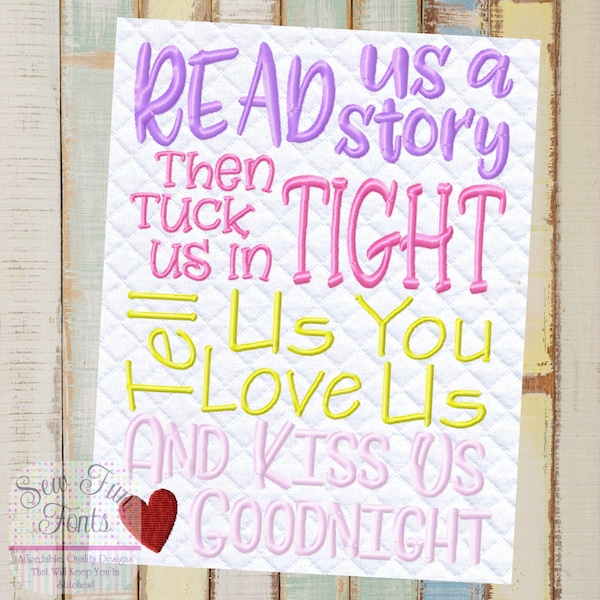 READ us a
story
Then
Tuck
us in TIGHT
Tell Us You
Love Us
AND KISS US
GOODNIGHT
Sew Fun
Fonts
Affordable, Quality Designs
That Will Keep You In
Stitches!